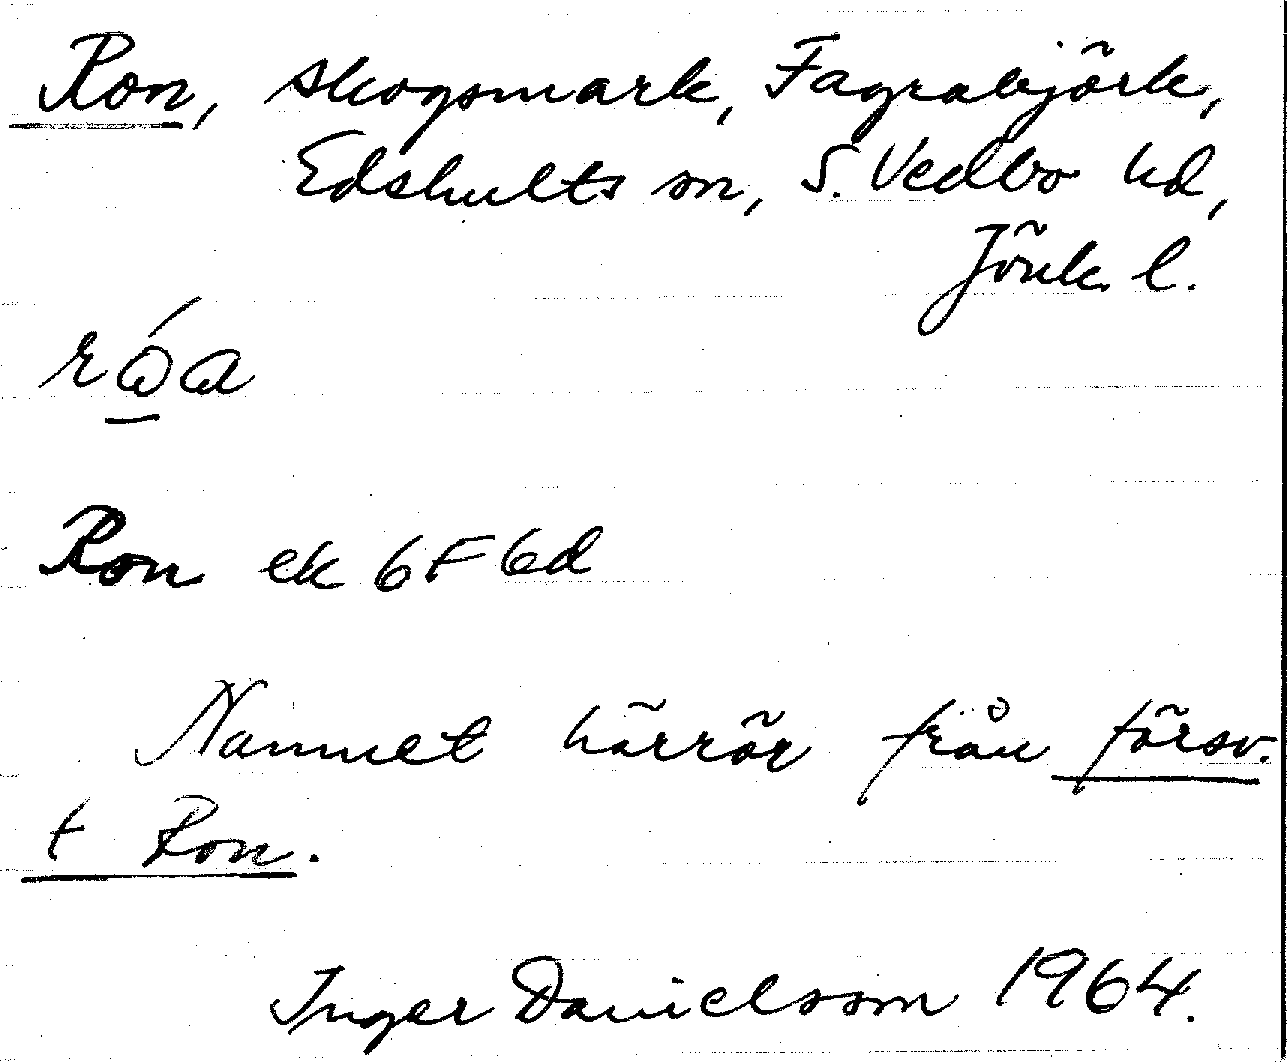 Ron, skogsmark, Fagrabjörk,
Edshults sn, S. Vedbo hd,
Jönk. l.
Ron ek 6F6d
Namnet härrör från försv.
t Ron.
Inger Danielsson 1964.